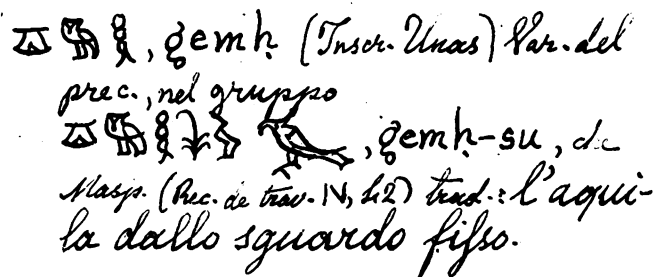 , gemḥ (Inscr. Unas) Var. del
prec., nel gruppo
, gemḥ-su,
Masp. (Rec. de trav. IV, 42) trad.: l'aqui-
la dallo sguardo fisso.